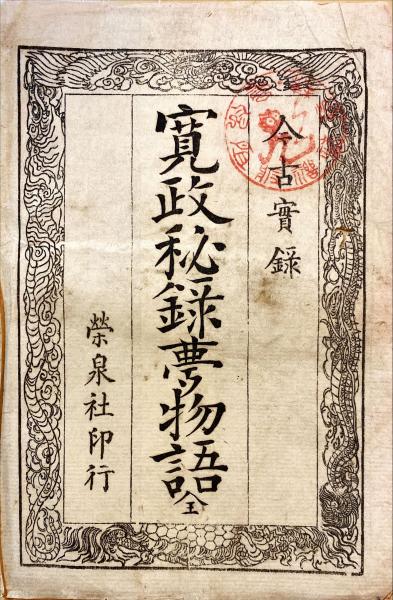 今古實錄
寛政秘錄夢物語 全
榮泉社印行